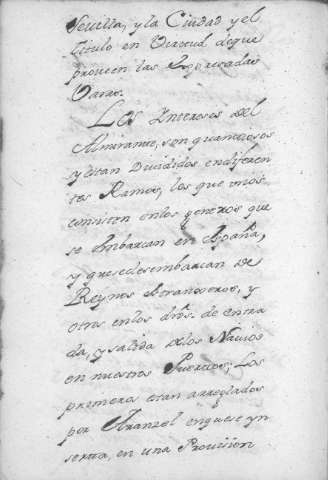 Sevilla, y la Ciudad y el
titulo en virtud de que
proveen las expresadas
Varas.
Los Intereses del
Almirante, son quantiosos
y estan Divididos en diferen
tes Ramos, los que unos
consisten en los generos que
se embarcan en España,
y que se desembarcan de
Reynos estrangeros, y
otros en los dros. de entra
da, y salida de los Navios
en nuestros Puertos; Los
primeros estan arreglados
por Aranzel en que se yn
serta, en una Provision